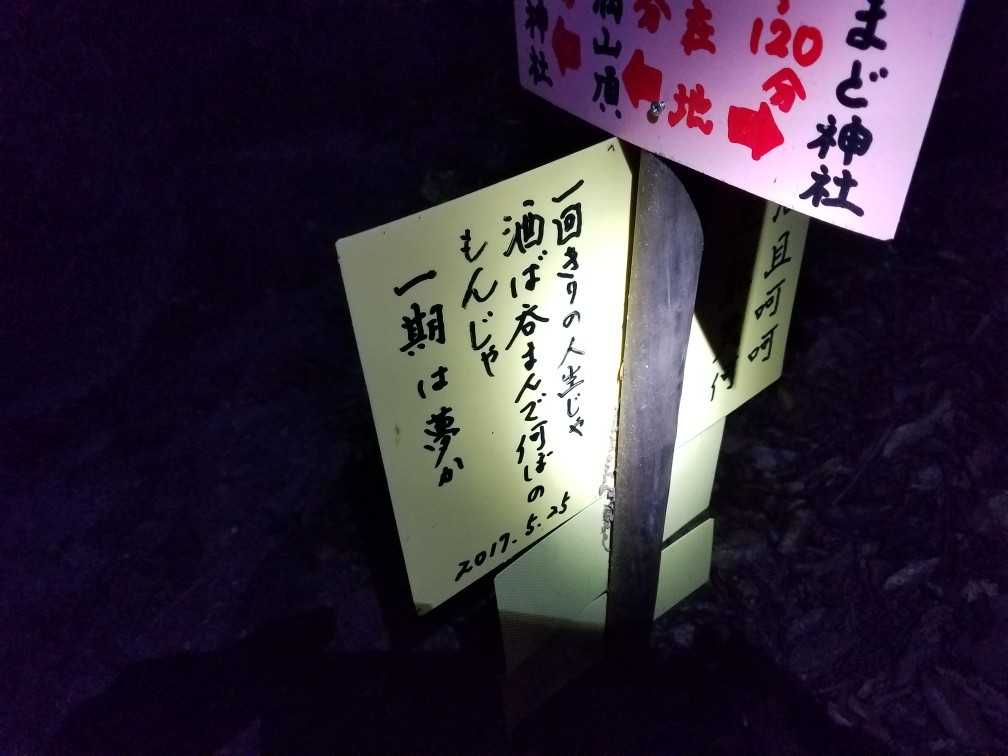 まど神社
120分
在地
分
山頂
神社
一回きりの人生じゃ
酒ば呑まんで何ばの
もんじゃ
一期は夢か
2017.5.25
且呵呵
何